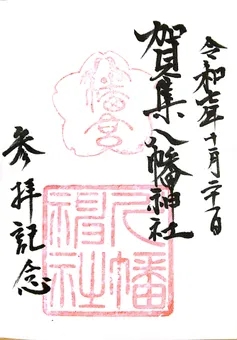 令和七年十月二十一日
賀集八幡神社
八幡宮
参拝記念